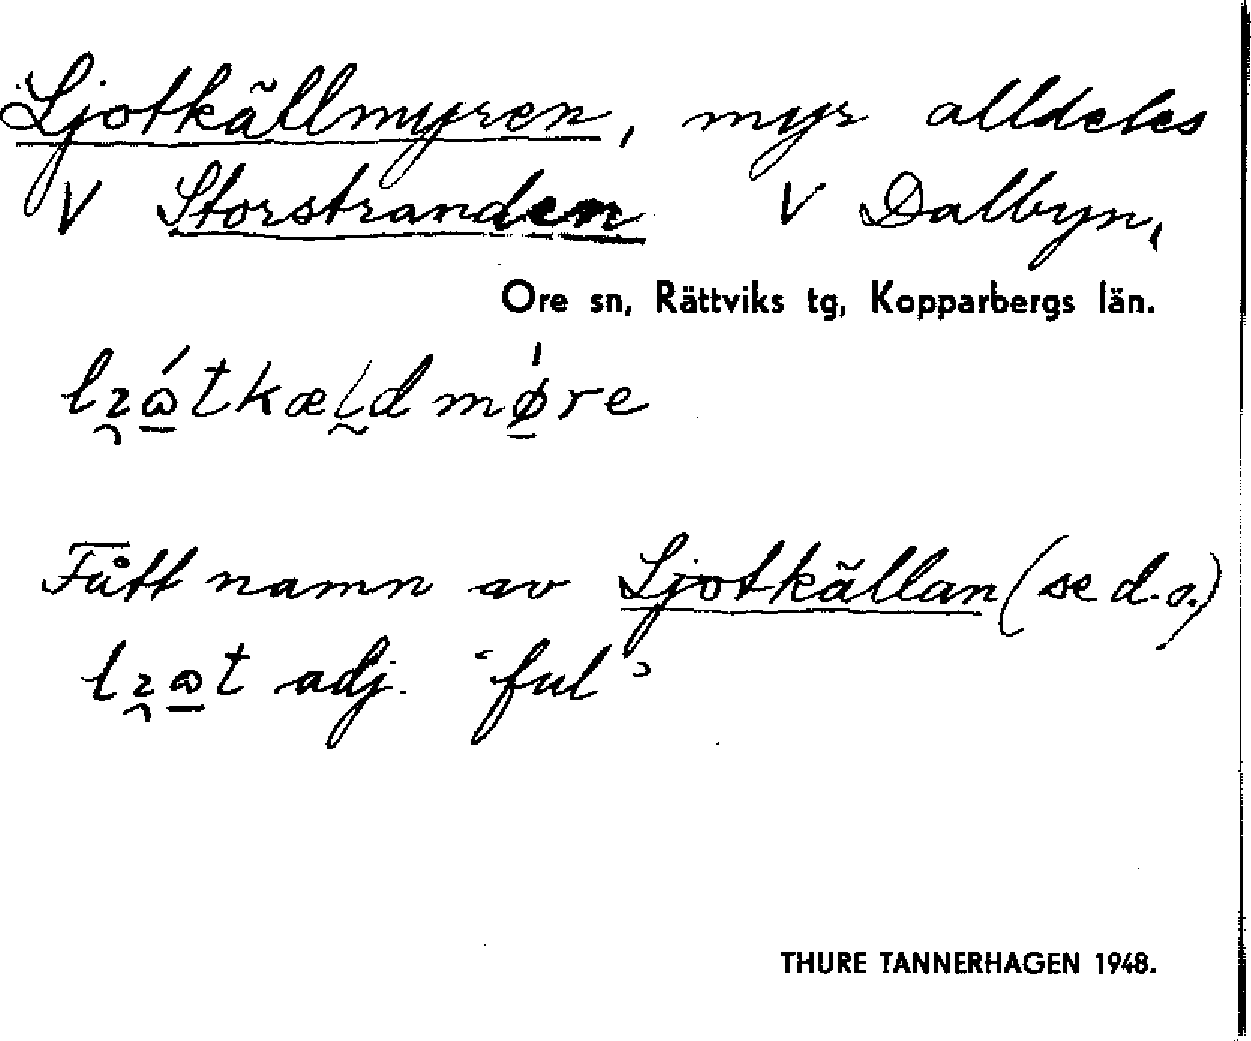 Ljotkällmyren, myr alldeles
V Storstranden V Dalbyn,
Ore sn, Rättviks tg, Kopparbergs län.
Fått namn av Ljotkällan (se d.o.)
adj. 'ful'
THURE TANNERHAGEN 1948.